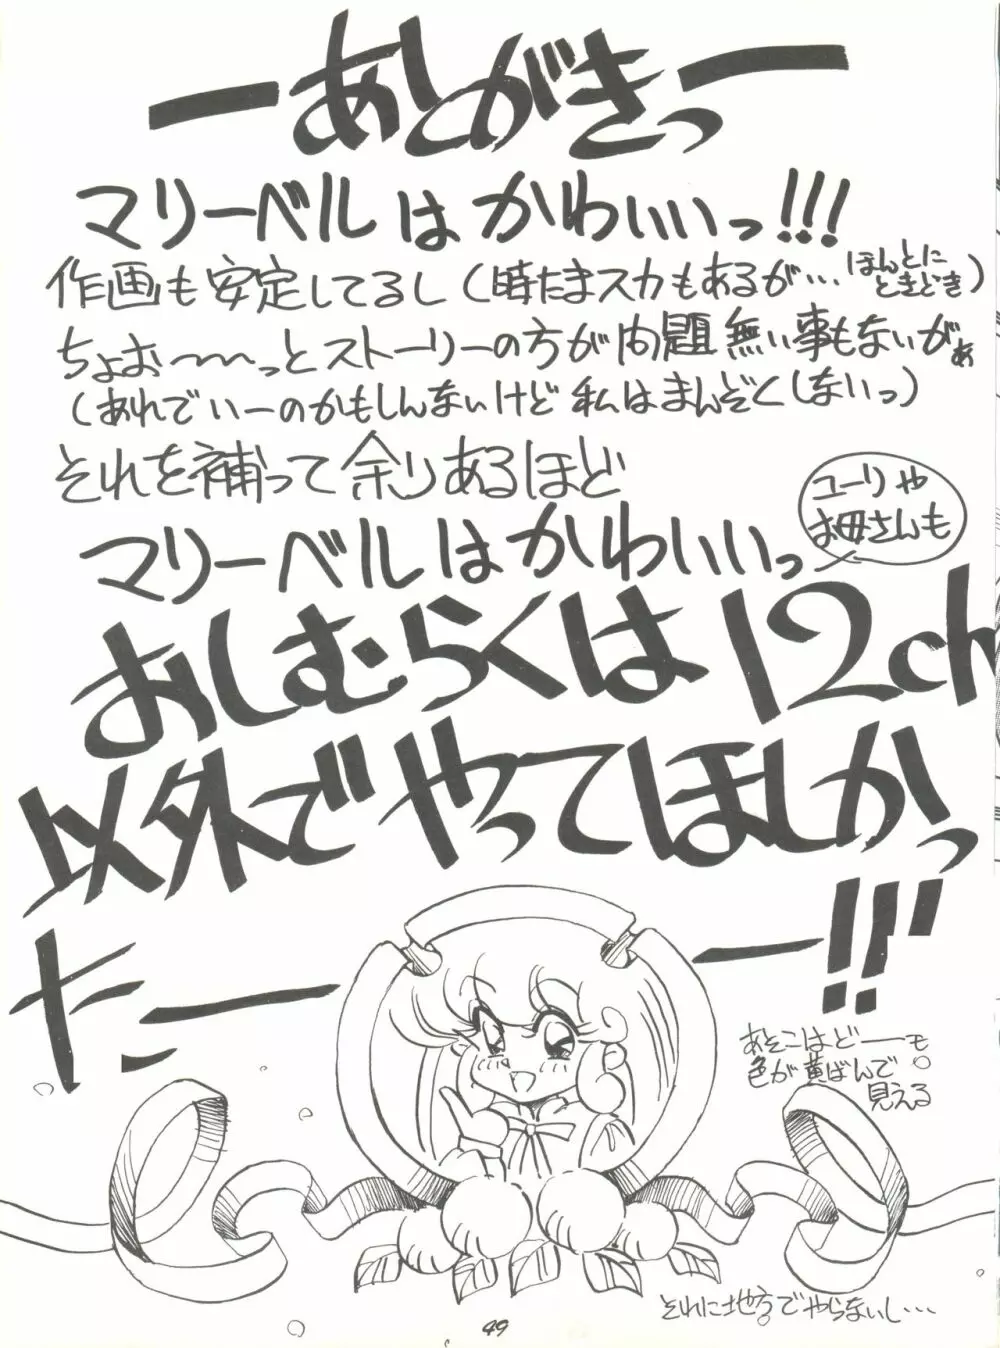 ーあとがきっー
マリーベルはかわいいっ!!!
作画も安定してるし(時たまスカもあるが…ほんとにときどき)
ちょお〜〜っとストーリーの方が問題無い事もないがぁ
(あれでいーのかもしんないけど私はまんぞくしないっ)
それを補って余りあるほど
マリーベルはかわいいっ
ユーリや
お母さんも
おしむらくは12ch
以外でやってほしかっ
たーー!!
あそこはどーーも
色が黄ばんで
見える。
それに地方でやらないし…
49